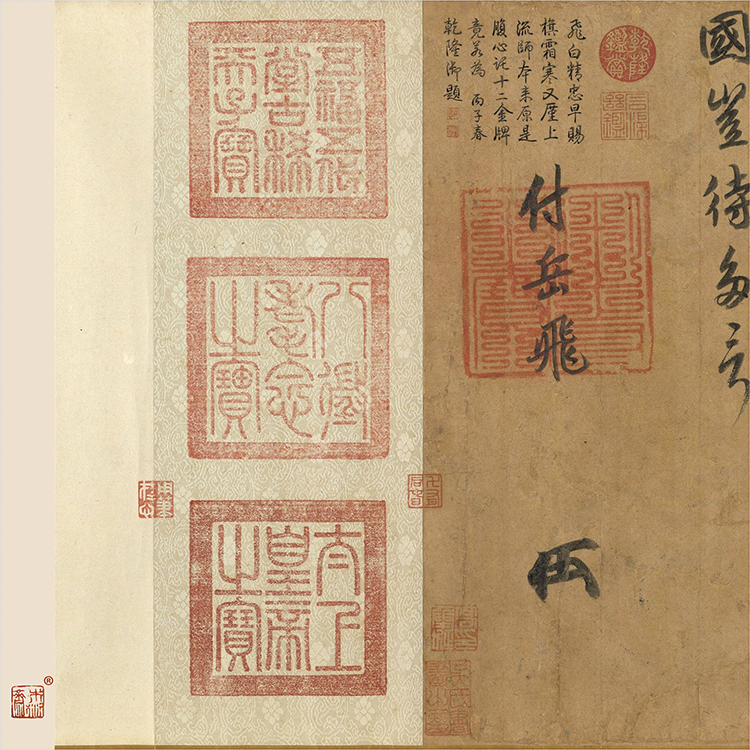 國豈待多言
乾隆鑑賞
飛白精忠早賜
旗霜寒又屢上
流師本来原是
腹心託十二金牌
竟若為 丙子春
乾隆御題
付岳飛
五福五代堂古稀天子寶
八徵耄念之寶
太上皇帝之寶
®